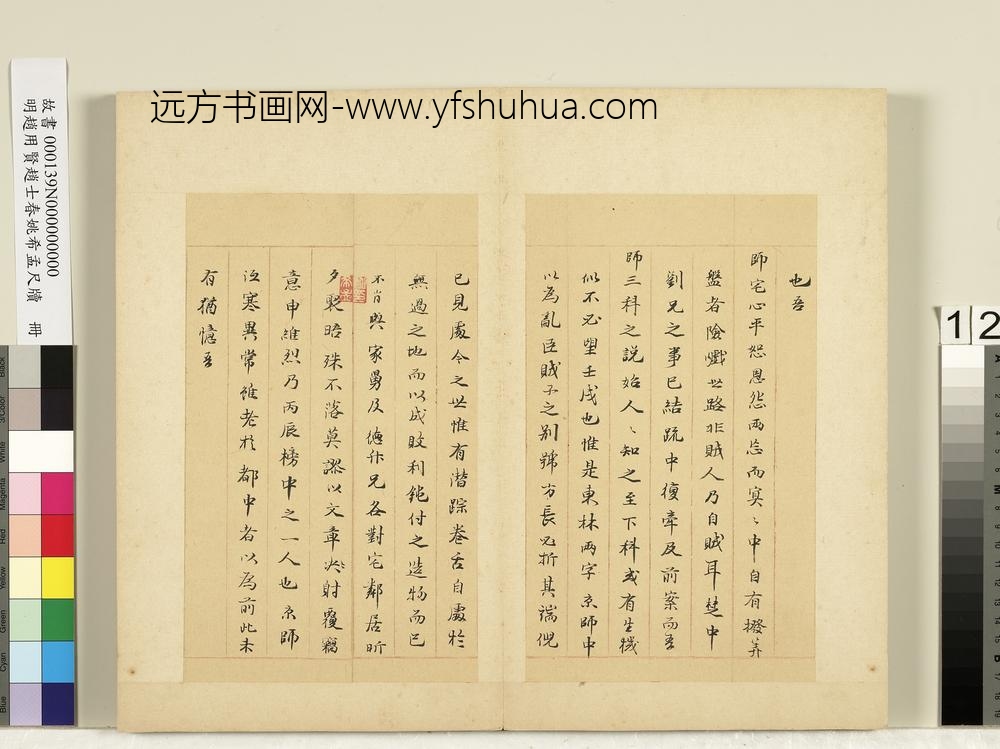 远方书画网-www.yfshuhua.com
故書 000139N000000000
明趙用賢趙士春姚希孟尺牘 冊
也吾
師宅心平恕恩怨兩忘而冥、中自有撥筭
盤者險巇世路非賊人乃自賊耳楚中
劉兄之事已結疏中復牽及前案而吾
師三科之説始人、知之至下科或有生機
似不必望壬戌也惟是東林兩字京師中
以為亂臣賊子之别號方長必折其端倪
已見處今之世惟有潛踪巻舌自處於
無過之地而以成敗利鈍付之造物而已
不肖與家舅及德升兄各對宅鄰居昕
夕聚晤殊不落莫謬以文章決射覆竊
意申維烈乃丙辰榜中之一人也京師
沍寒異常雖老於都中者以為前此未
有猶憶吾
12
Black
3/Color
White
Magenta
Red
Yellow
Green
Cyan
Blue